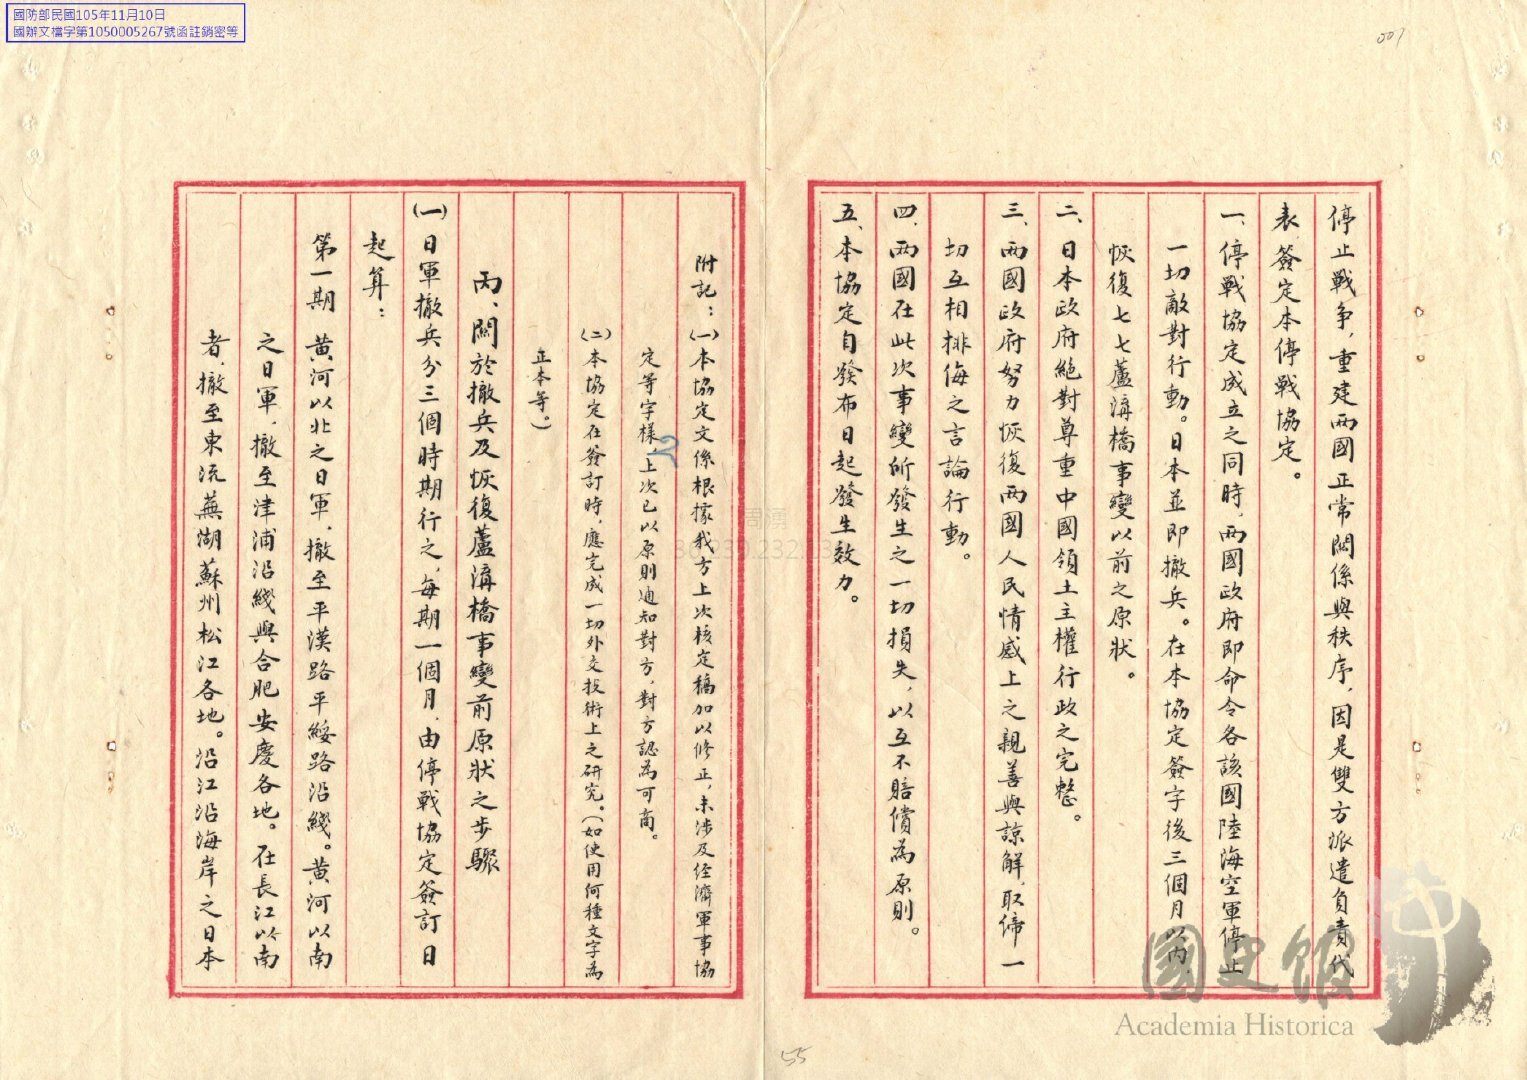 國防部民國105年11月10日
國辦文檔字第1050005267號函註銷密等
007
停止戰爭，重建兩國正常關係與秩序，因是雙方派遣負責代
表，簽定本停戰協定。
一、停戰協定成立之同時，兩國政府即命令各該國陸海空軍停止
一切敵對行動。日本並即撤兵。在本協定簽字後三個月以內，
恢復七七蘆溝橋事變以前之原狀。
二、日本政府絕對尊重中國領土主權行政之完整。
三、兩國政府努力恢復兩國人民情感上之親善與諒解，取締一
切互相排侮之言論行動。
四、兩國在此次事變所發生之一切損失，以互不賠償為原則。
五、本協定自發布日起發生效力。
附記：(一)本協定文係根據我方上次核定稿加以修正，未涉及經濟軍事協
定等字樣，上次已以原則通知對方，對方認為可商。
(二)本協定在簽訂時，應完成一切外交技術上之研究。(如使用何種文字為
正本等。)
丙、關於撤兵及恢復蘆溝橋事變前原狀之步驟
(一)日軍撤兵分三個時期行之，每期一個月，由停戰協定簽訂日
起算：
第一期 黃河以北之日軍，撤至平漢路平綏路沿綫。黃河以南
之日軍，撤至津浦沿綫與合肥安慶各地。在長江以南
者，撤至東流蕪湖蘇州松江各地。沿江沿海岸之日本
55
國史館
Academia Historica